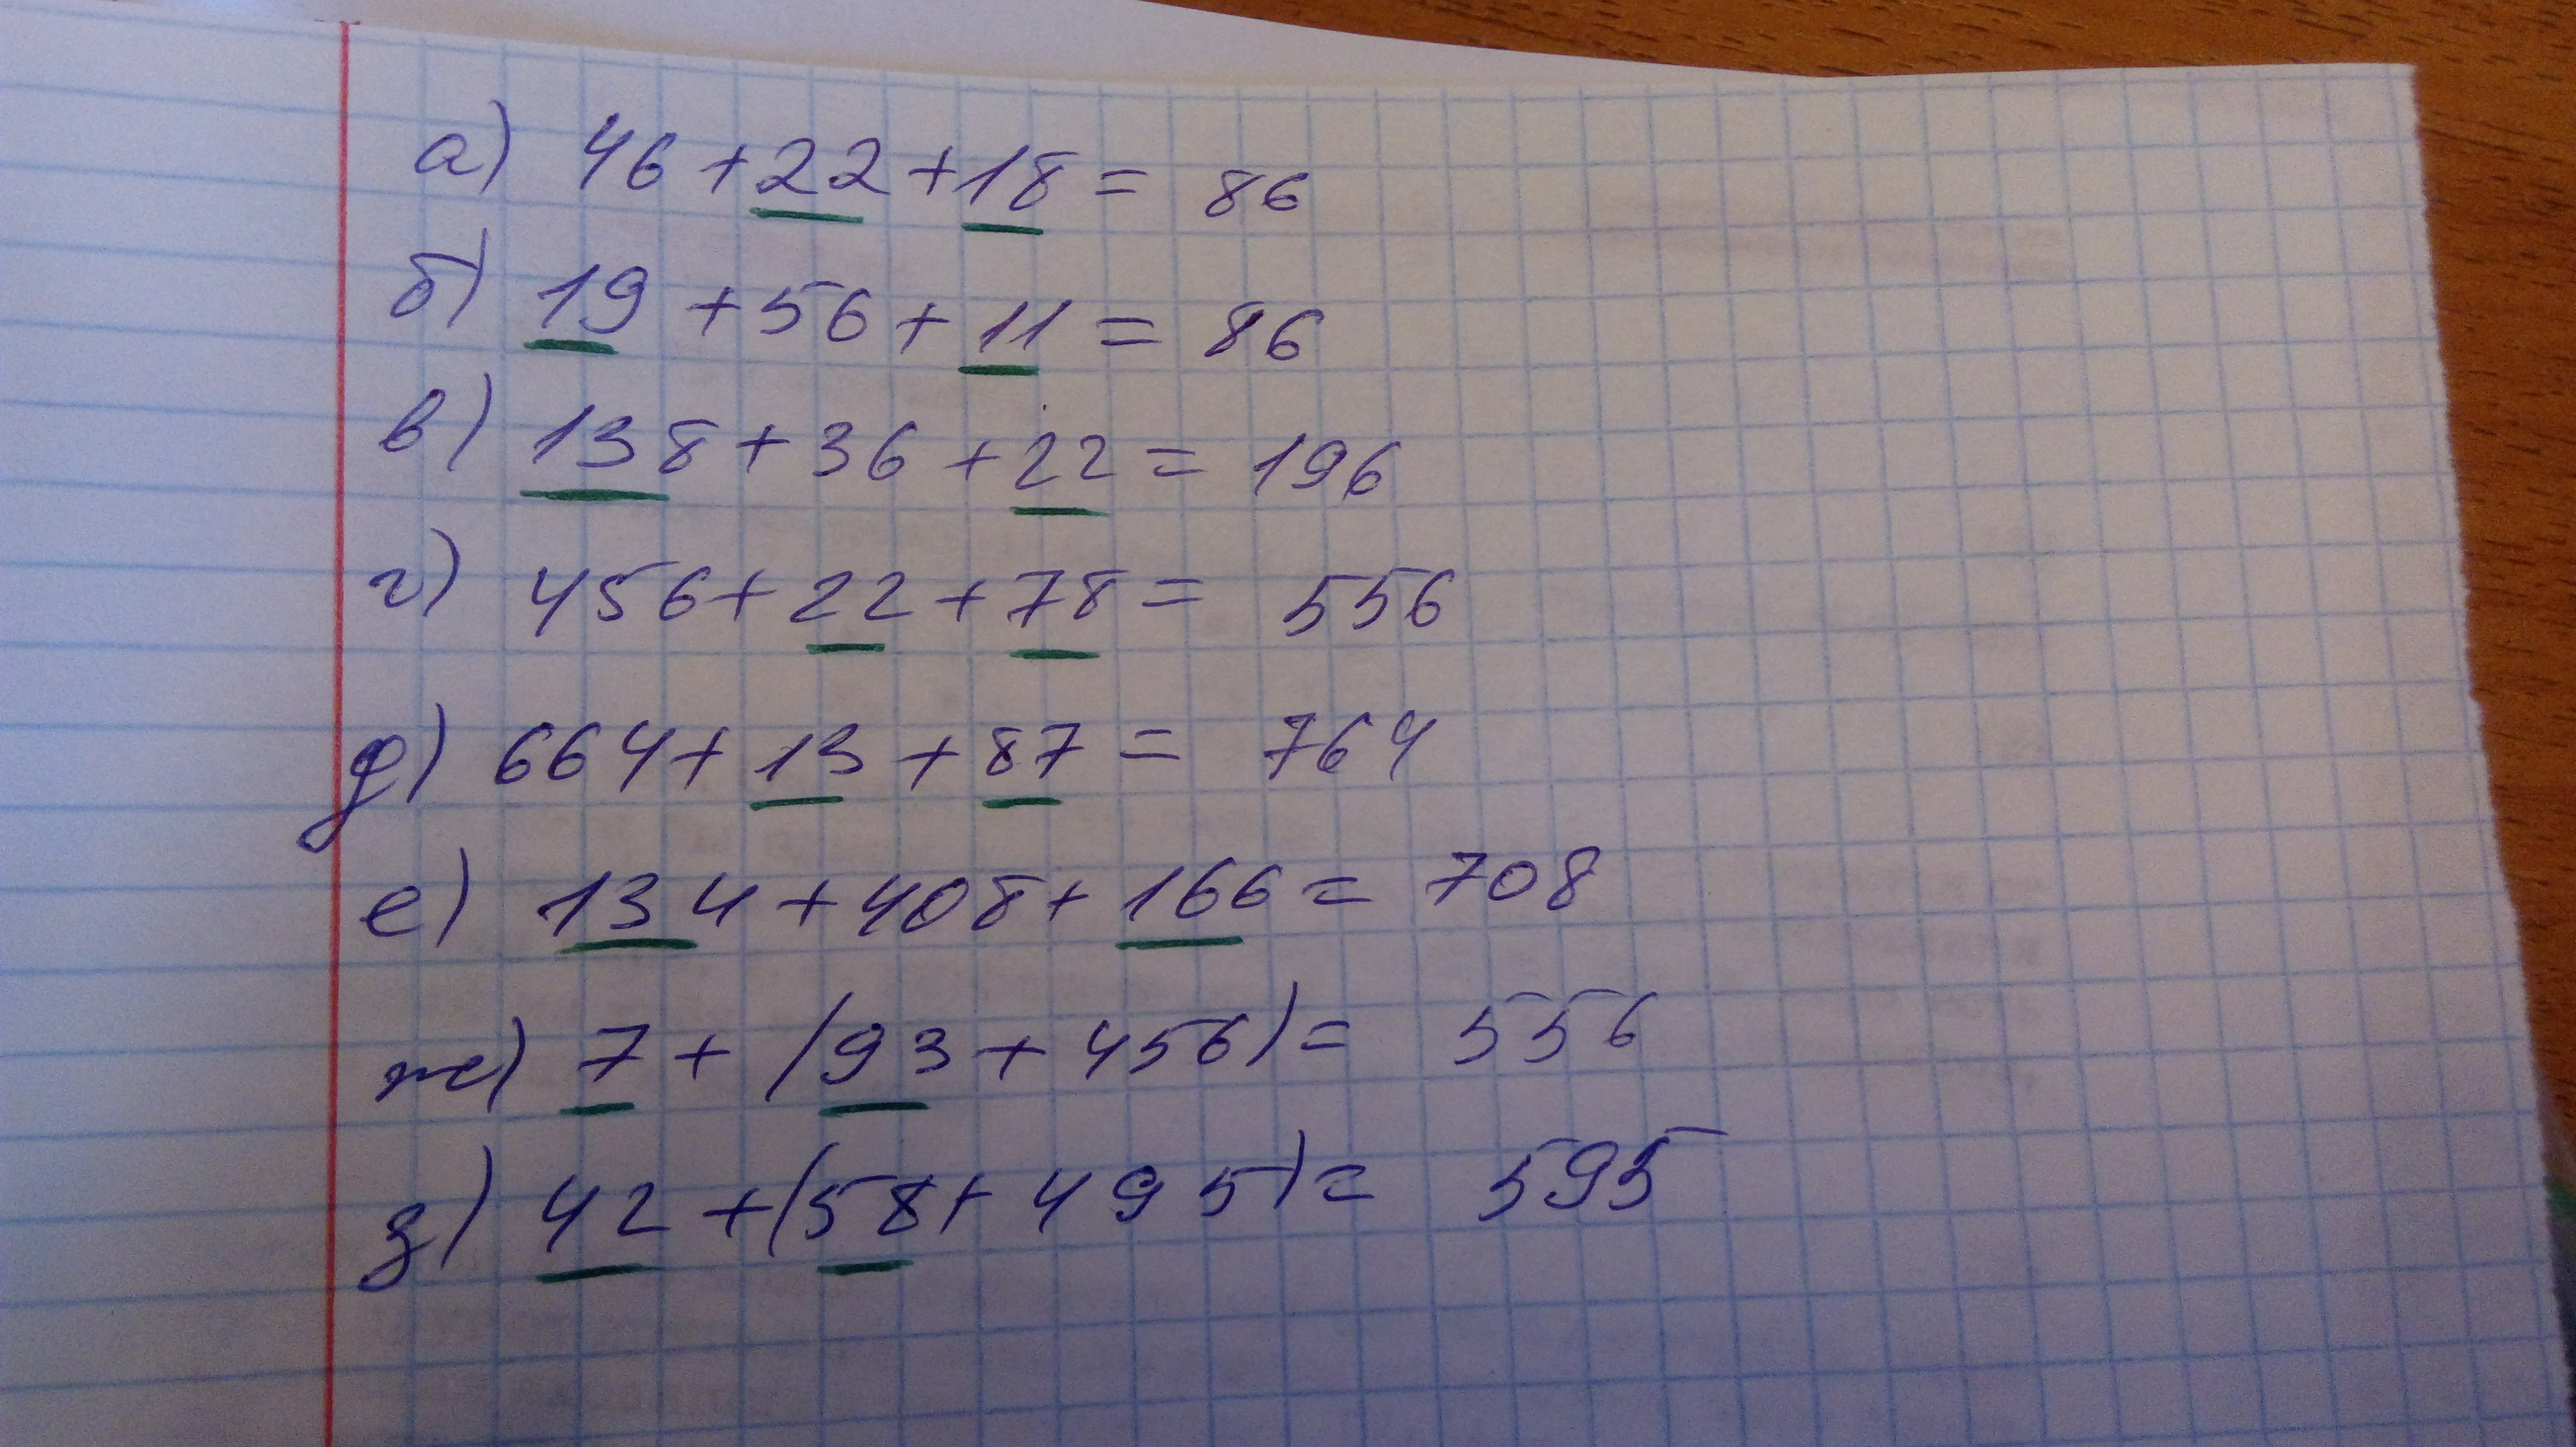 а) 46 + 22 + 18 = 86
б) 19 + 56 + 11 = 86
в) 138 + 36 + 22 = 196
г) 456 + 22 + 78 = 556
д) 664 + 13 + 87 = 764
е) 134 + 408 + 166 = 708
ж) 7 + (93 + 456) = 556
з) 42 + (58 + 495) = 595